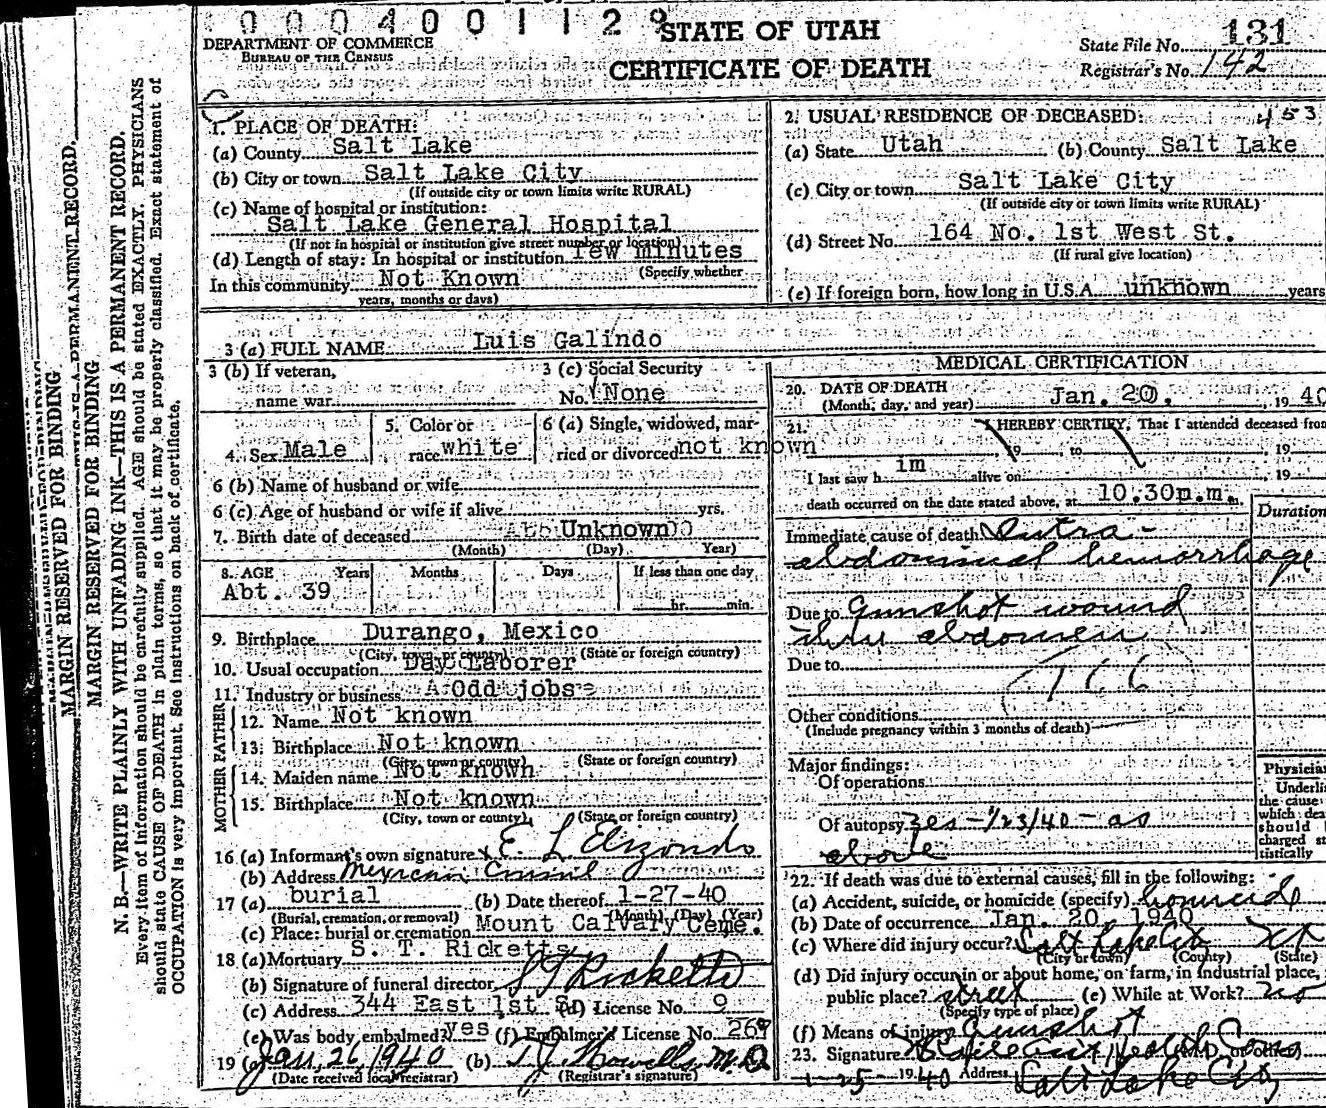 0004001129
STATE OF UTAH
CERTIFICATE OF DEATH
DEPARTMENT OF COMMERCE
BUREAU OF THE CENSUS
State File No. 131
Registrar's No. 142
MARGIN RESERVED FOR BINDING
MARGIN RESERVED FOR BINDING
N. B.—WRITE PLAINLY WITH UNFADING INK—THIS IS A PERMANENT RECORD.
Every item of information should be carefully supplied. AGE should be stated EXACTLY. PHYSICIANS
should state CAUSE OF DEATH in plain terms, so that it may be properly classified. Exact statement of
OCCUPATION is very important. See instructions on back of certificate.
1. PLACE OF DEATH:
(a) County Salt Lake
(b) City or town Salt Lake City
(If outside city or town limits write RURAL)
(c) Name of hospital or institution:
Salt Lake General Hospital
(If not in hospital or institution give street number or location)
(d) Length of stay: In hospital or institution few minutes
(Specify whether
In this community Not Known
years, months or days)
2. USUAL RESIDENCE OF DECEASED: 453
(a) State Utah (b) County Salt Lake
(c) City or town Salt Lake City
(If outside city or town limits write RURAL)
(d) Street No. 164 No. 1st West St.
(If rural give location)
(e) If foreign born, how long in U.S.A. unknown years
3 (a) FULL NAME Luis Galindo
3 (b) If veteran,
name war
3 (c) Social Security
No. None
4. Sex Male
5. Color or
race white
6 (a) Single, widowed, mar-
ried or divorced not known
6 (b) Name of husband or wife
6 (c) Age of husband or wife if alive yrs.
7. Birth date of deceased Unknown
(Month) (Day) Year)
8. AGE Years Months Days If less than one day
Abt. 39 hr. min.
9. Birthplace Durango, Mexico
(City, town or county) (State or foreign country)
10. Usual occupation Day Laborer
11. Industry or business Odd jobs
FATHER
12. Name Not known
13. Birthplace Not known
(City, town or county) (State or foreign country)
MOTHER
14. Maiden name Not known
15. Birthplace Not known
(City, town or county) (State or foreign country)
16 (a) Informant's own signature E. L Elizondo
(b) Address Mexican Consul
17 (a) burial (b) Date thereof 1-27-40
(Burial, cremation, or removal) (Month) (Day) (Year)
(c) Place: burial or cremation Mount Calvary Ceme.
18 (a) Mortuary S. T. Ricketts
(b) Signature of funeral director S T Ricketts
(c) Address 344 East 1st S. (d) License No. 9
(e) Was body embalmed? yes (f) Embalmer's License No. 269
19 (a) Jan. 26, 1940 (b) T. J. Howells, M.D.
(Date received local registrar) (Registrar's signature)
MEDICAL CERTIFICATION
20. DATE OF DEATH
(Month, day, and year) Jan. 20, 19 40
21. I HEREBY CERTIFY, That I attended deceased from
, 19 , to , 19
I last saw h im alive on , 19
death occurred on the date stated above, at 10.30p.m. m.
Duration
Immediate cause of death Intra-
abdominal hemorrhage
Due to Gunshot wound
thru abdomen
Due to
166
Other conditions
(Include pregnancy within 3 months of death)
Major findings:
Of operations
Of autopsy yes - 1/23/40 - as
above
Physician
Underli
the cause
which dea
should
charged st
tistically
22. If death was due to external causes, fill in the following:
(a) Accident, suicide, or homicide (specify) homicide
(b) Date of occurrence Jan. 20, 1940
(c) Where did injury occur? Salt Lake City Ut
(City or town) (County) (State)
(d) Did injury occur in or about home, on farm, in industrial place,
public place? street (e) While at Work? no
(Specify type of place)
(f) Means of injury Gunshot
23. Signature Health Com (M.D. or other)
1-25-1940 Address Salt Lake City